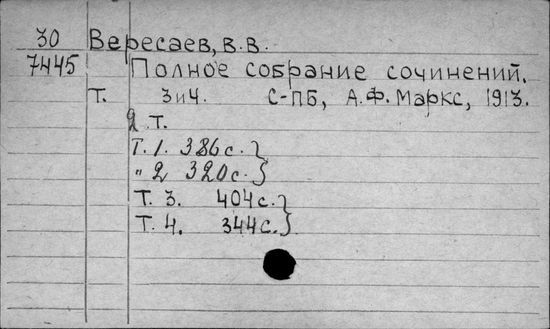 30 Вересаев, В.В.
7445 Полное собрание сочинений.
Т. 3 и 4. С-ПБ, А.Ф. Маркс, 1913.
2 т.
Т. 1. 386 с. }
" 2 320 с. }
Т. 3. 404 с. }
Т. 4. 344 с. }